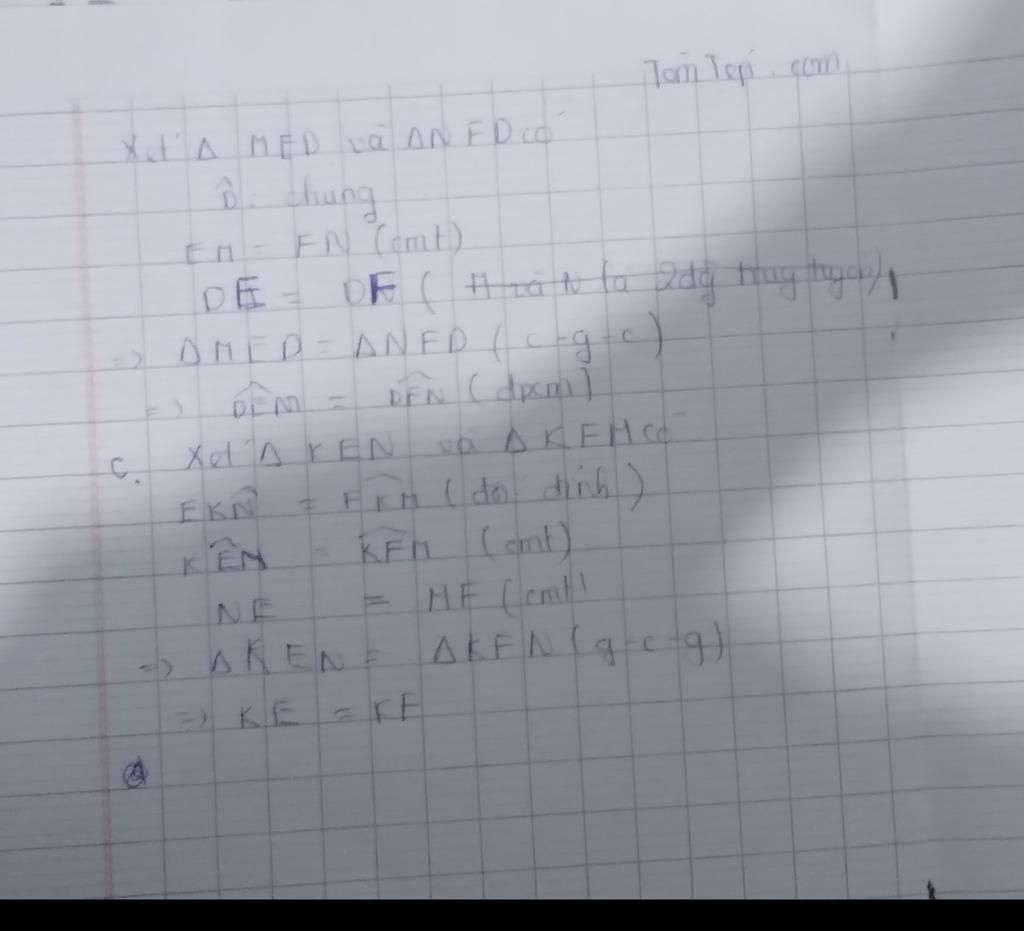 Xét Δ MED và ΔNFD có
D̂. chung
EM = FN (cmt)
DE = DF ( M và N là 2
=> ΔMED = ΔNFD ( c-g-c )
=> DEM̂ = DFN̂ (đpcm)
c. Xét Δ KEN và Δ KFM có
EKN̂ = FKM̂ (đối đỉnh)
KEN̂ = KFM̂ (cmt)
NE = MF (cmt)
=> ΔKEN = ΔKFN (g-c-g)
=> KE = KF